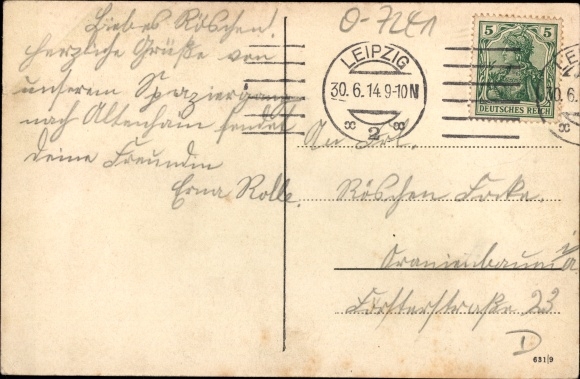 O-7241
Liebes Röschen!
Herzliche Grüße von
unserem Spaziergang
nach Altenhain sendet
Deine Freundin
Erna Rolle.
LEIPZIG
30. 6. 14. 9-10 N
8 2 8
5 5
DEUTSCHES REICH
LE
30. 6.
8
An Frl.
Röschen
Oranienbaum i/A
Försterstraße 23
D
631 9